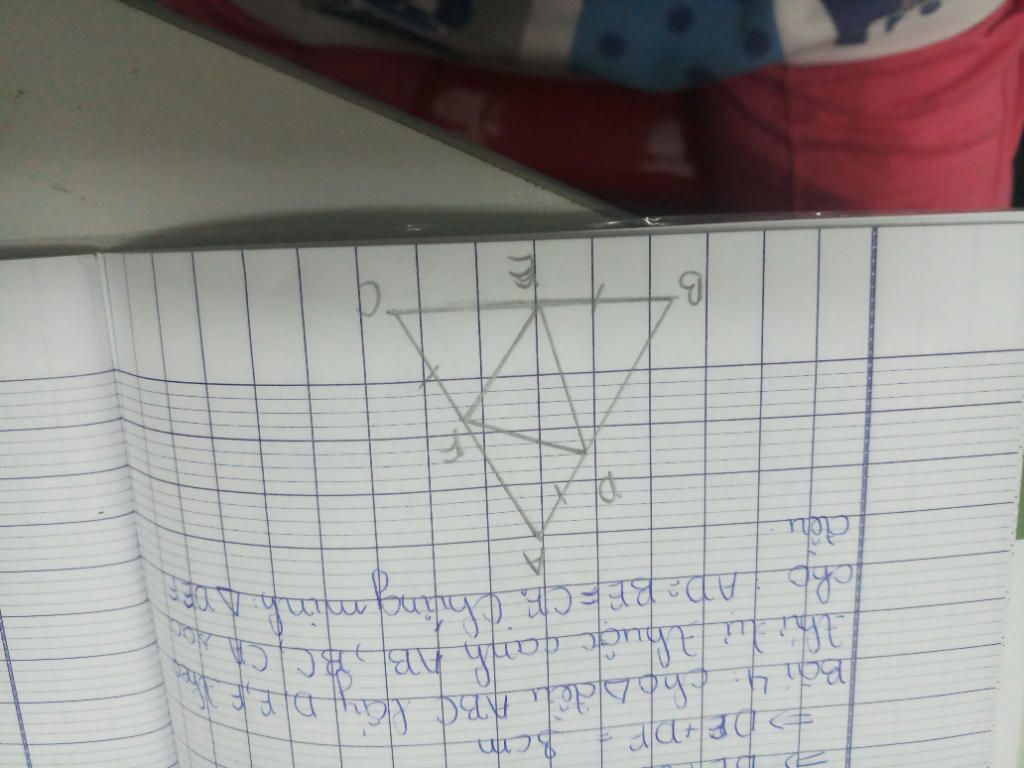 => DE
=> DE + DF = 3cm
Bài 4. Cho Δ đều ABC lấy D, E, F theo
thứ tự thuộc cạnh AB, BC, CA sao
cho AD = BE = CF. Chứng minh: Δ DEF
đều.
A
D
F
B
E
C